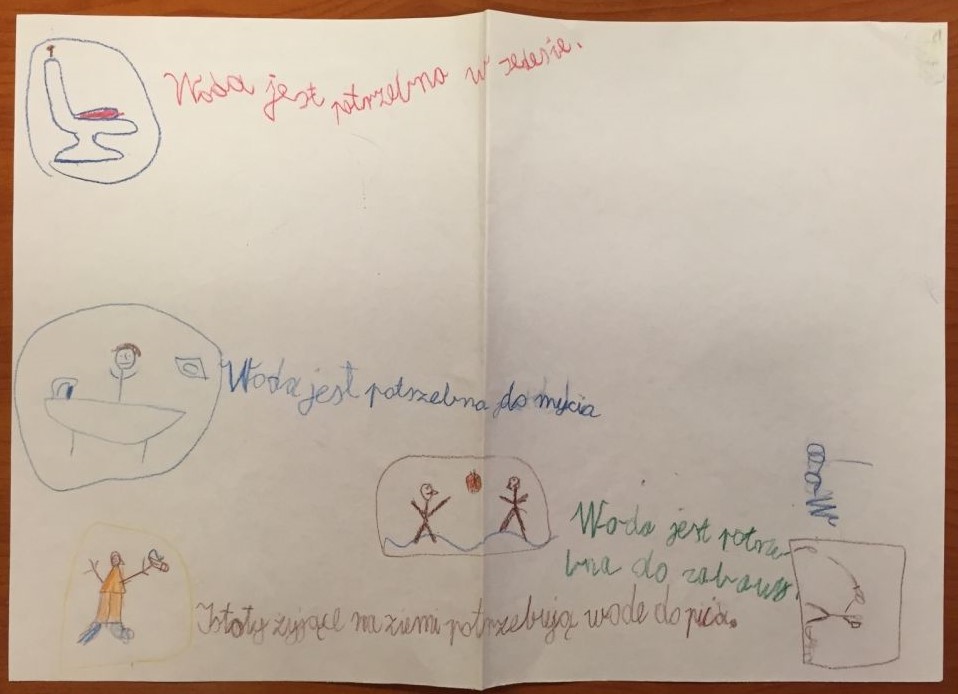 Woda jest potrzebna w zlewie.
Woda jest potrzebna do mycia
Woda jest potrze-
bna do zabawy.
Istoty żyjące na ziemi potrzebują wode do picia.
Woda